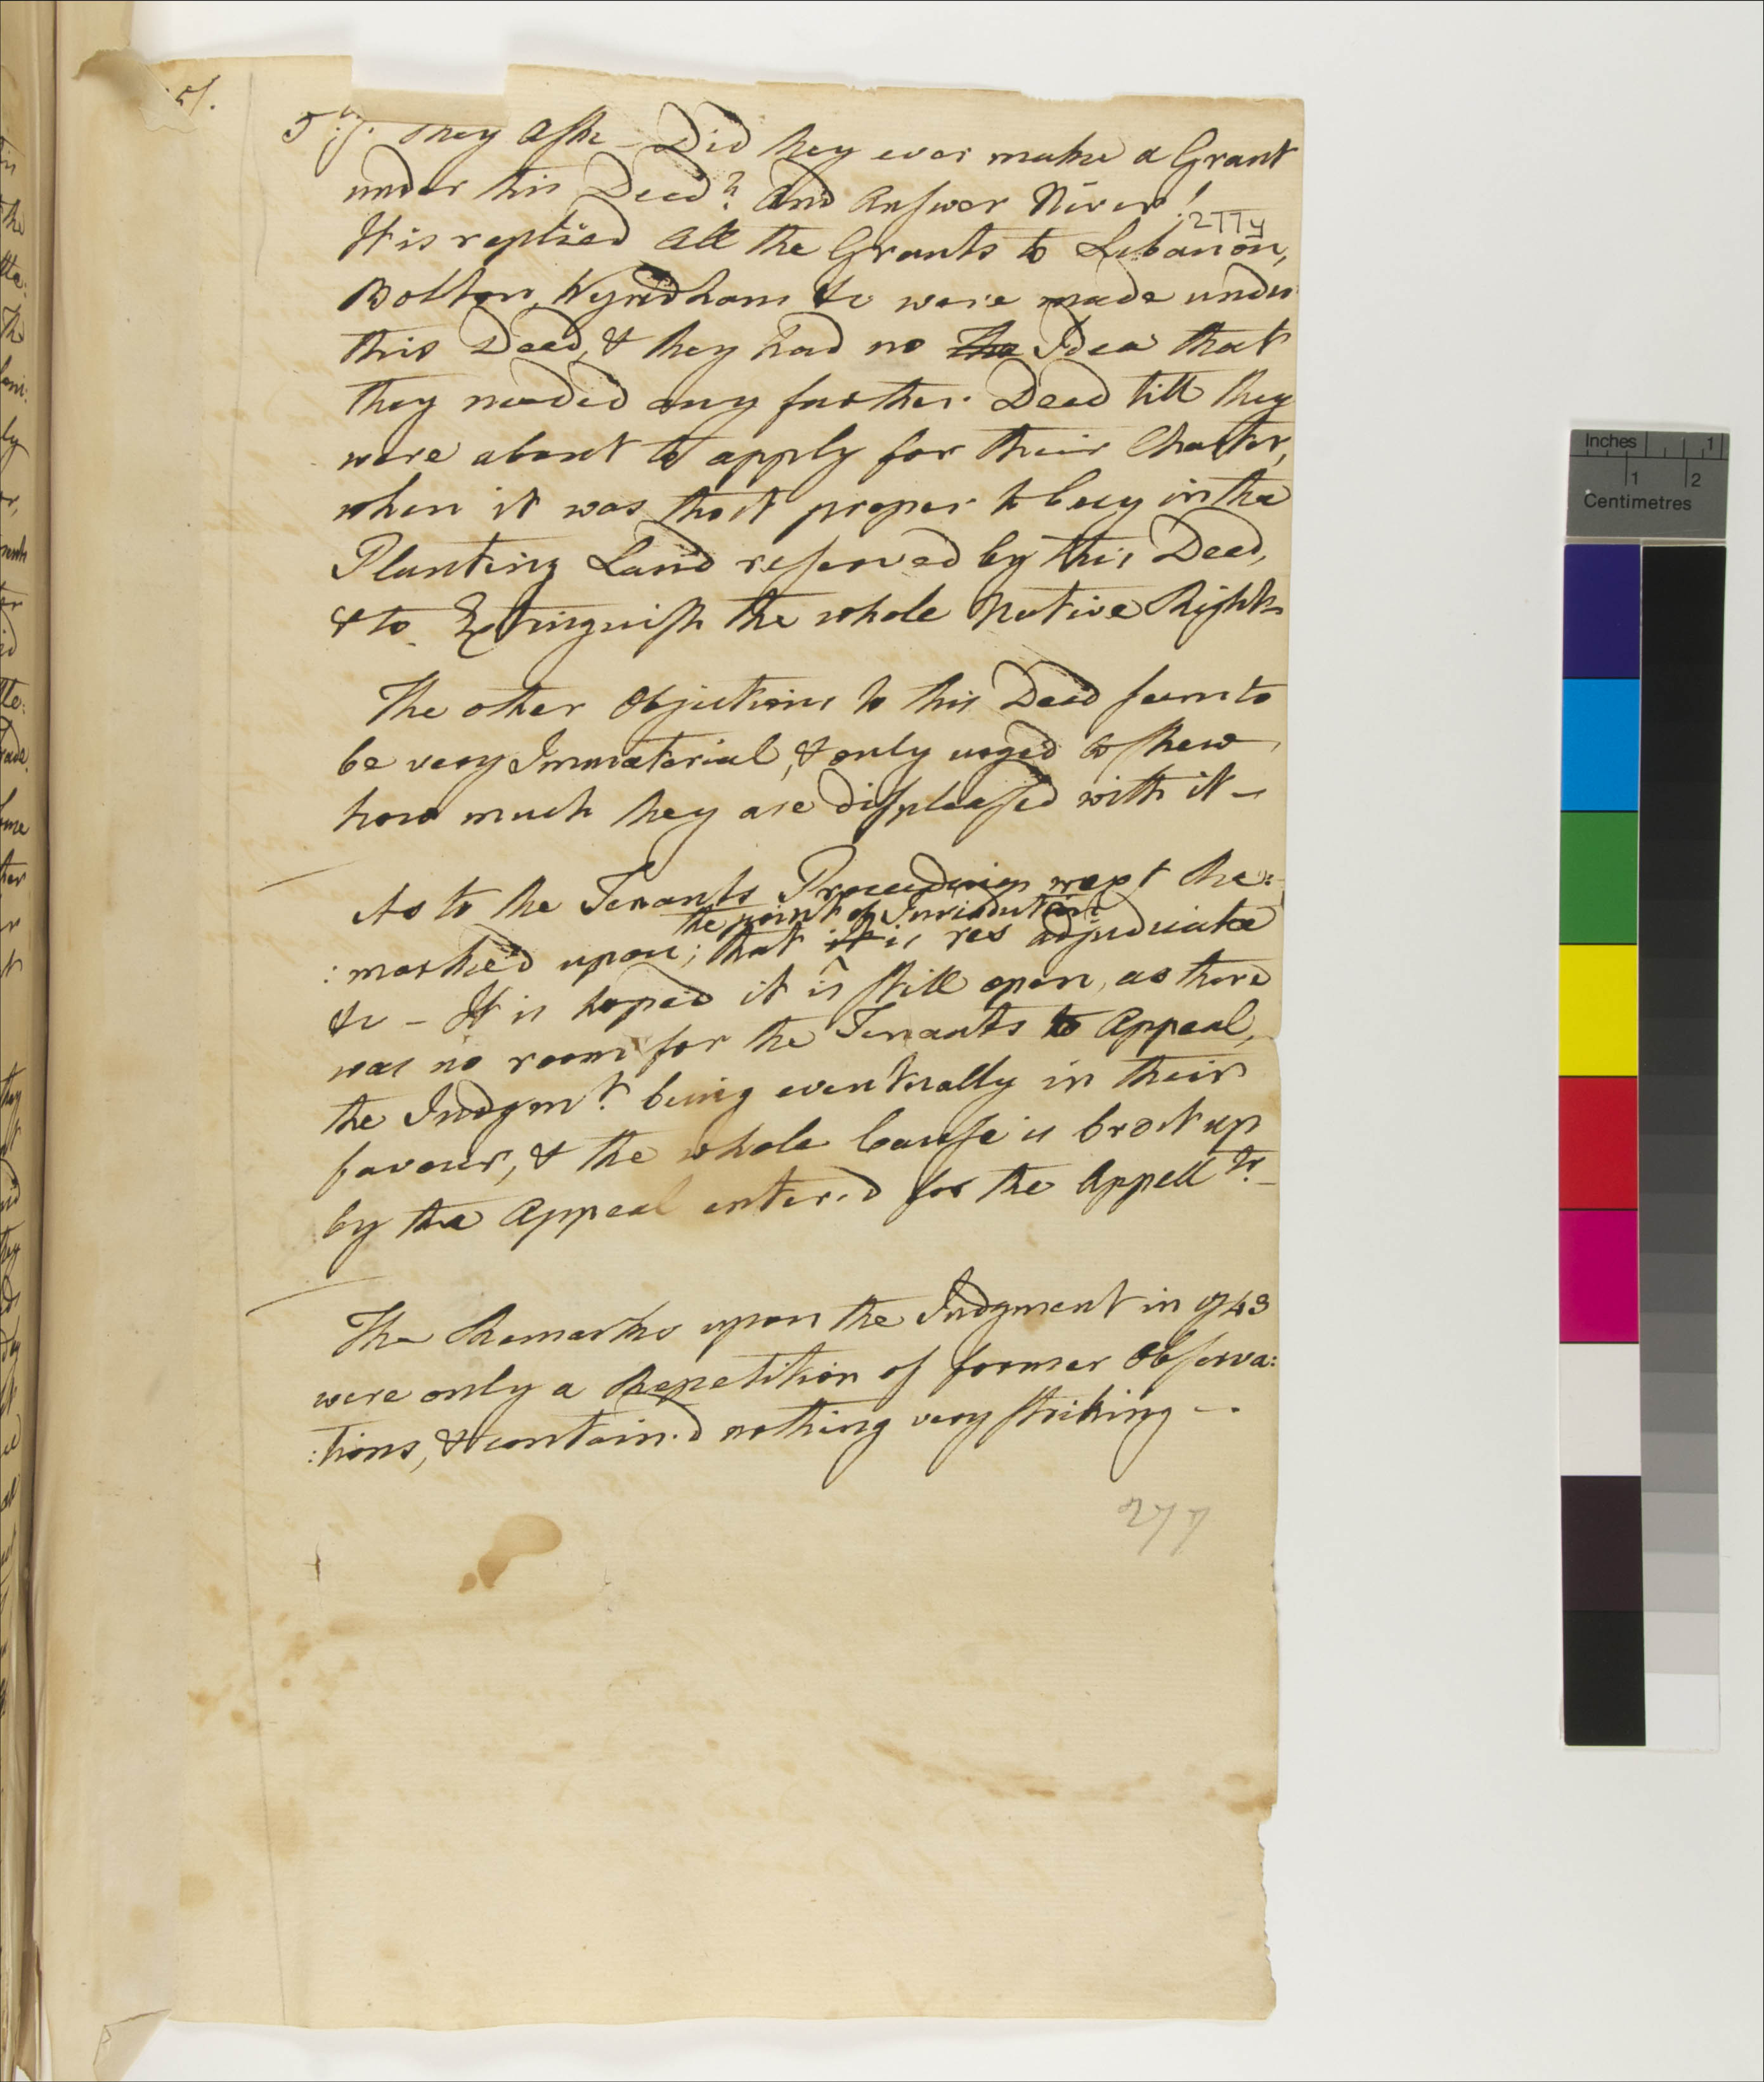 5/.
5ly. They Ask – Did they ever make a Grant
under this Deed? And Answer Never!
277y
It is replied All the Grants to Lebanon,
Bolton, Wyndham &c were made under
this Deed, & they had no the Idea that
they needed any farther Deed till they
were about to apply for their Charter,
when it was tho't proper to buy in the
Planting Land reserved by this Deed,
& to Extinguish the whole Native Right
The other Objections to this Deed seem to
be very Immaterial, & only urged to shew
how much they are displeased with it –
As to the Tenants Proceedings next Re:
the point of Jurisdiction
:marked upon; that it is res adjudicata
&c – It is hoped it is still open, as there
was no room for the Tenants to Appeal,
the Judgmt. being eventually in their
favour, & the whole Cause is bro't up
by the Appeal enter'd for the Appellts. –
The Remarks upon the Judgment in 1743
were only a Repetition of former Observa:
:tions, & contain'd nothing very striking –.
277
Inches 1
1 2
Centimetres